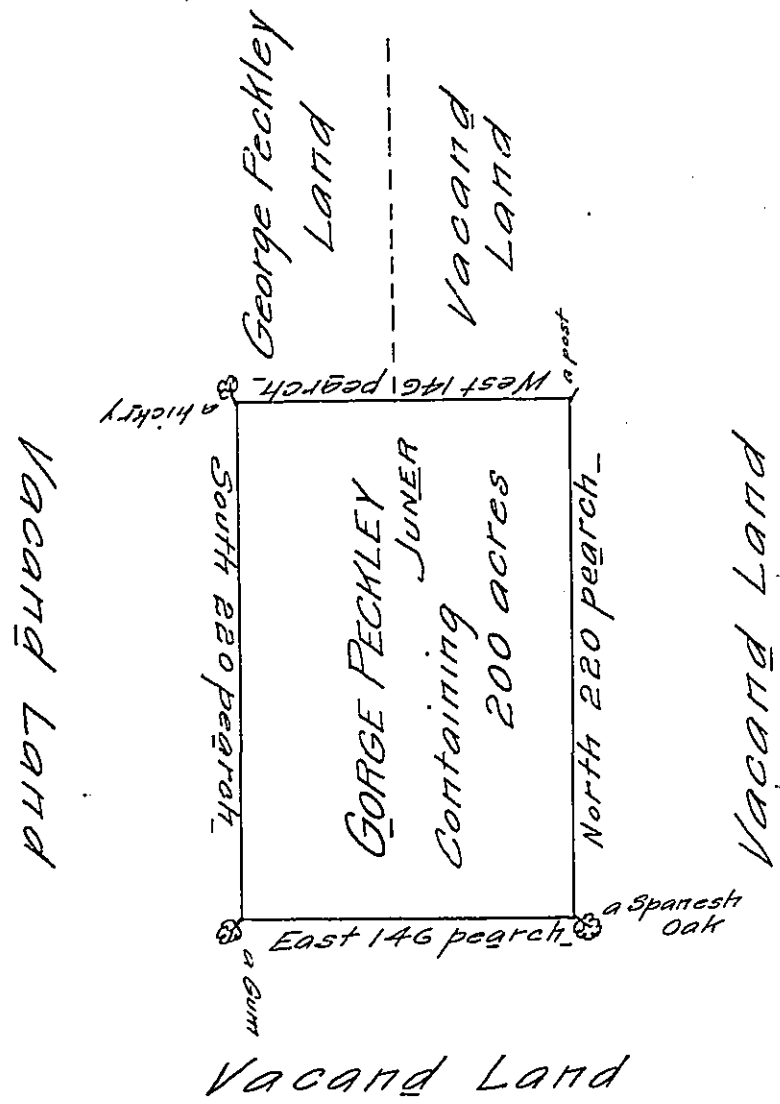 George Peckley
Land
Vacand
Land
a hickry
West 146 pearch_
a post
Vacand Land
South 220 pearch_
GORGE PECKLEY
JUNER
Containing
200 acres
North 220 pearch_
Vacand Land
a Gum
East 146 pearch_
a Spanesh
Oak
Vacand Land